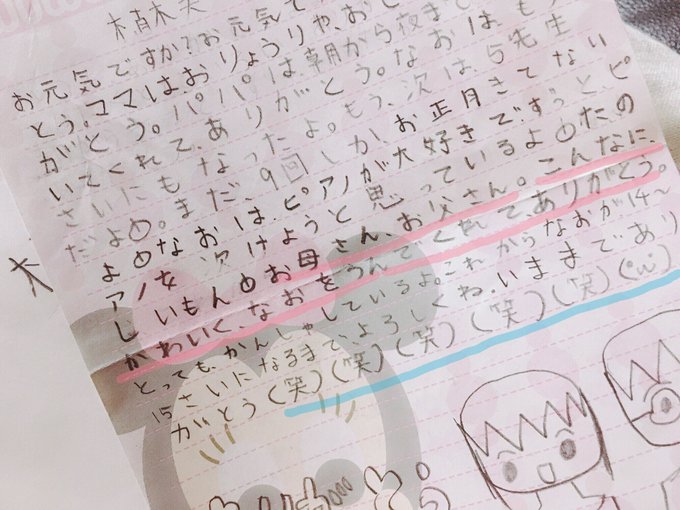 お元気ですか?お元気で
とう。ママはおりょうりや、お
がとう。パパは、朝から夜まで
いてくれて、ありがとう。なおは、も
さいにもなったよ。もう、次は、5先生
だよ。まだ、9回しか、お正月きてない
よ なおは、ピアノが大好きです。ずっと、ピ
アノを次けようと思っているよ。たの
しいもん お母さんお父さん。こんなに、
かわいく、なおをうんでくれて、ありがとう。
とっても、かんしゃしているよ。これからなおが14~
15さいになるまで、よろしくね。いままであり
がとう(笑)(笑)(笑)(笑)(笑)